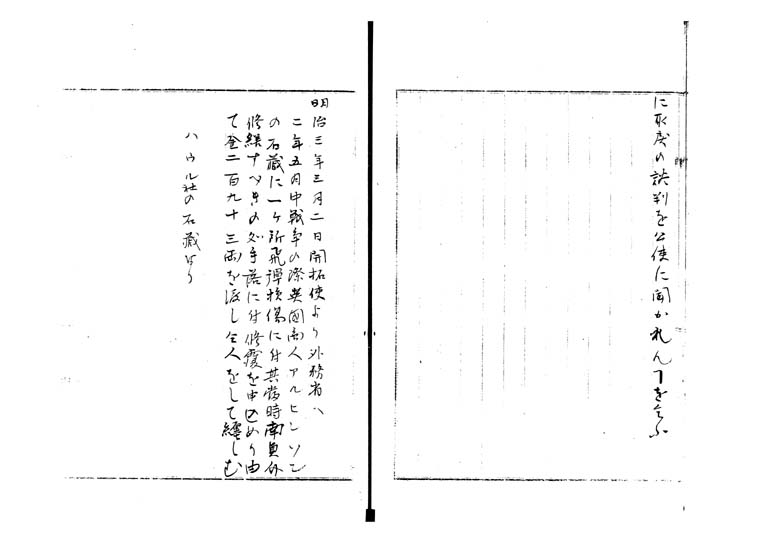 に取戻の談判を公使に開かれんヿを乞ふ
明治三年三月二日開拓使より外務省へ
二年五月中戦争の際英国商人アルヒンソン
の石蔵に一ヶ所飛弾損傷に付其当時南貞外
修繕すべきの処手落に付修覆を申込めり由
て金二百九十三両を渡し仝人をして繕しむ
ハウル社の石蔵なり